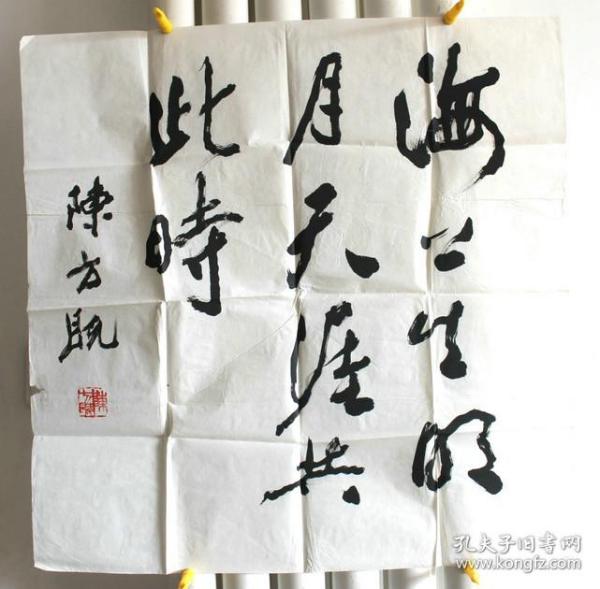 海上生明
月天涯共
此時
陳方既
孔夫子旧书网
www.kongfz.com